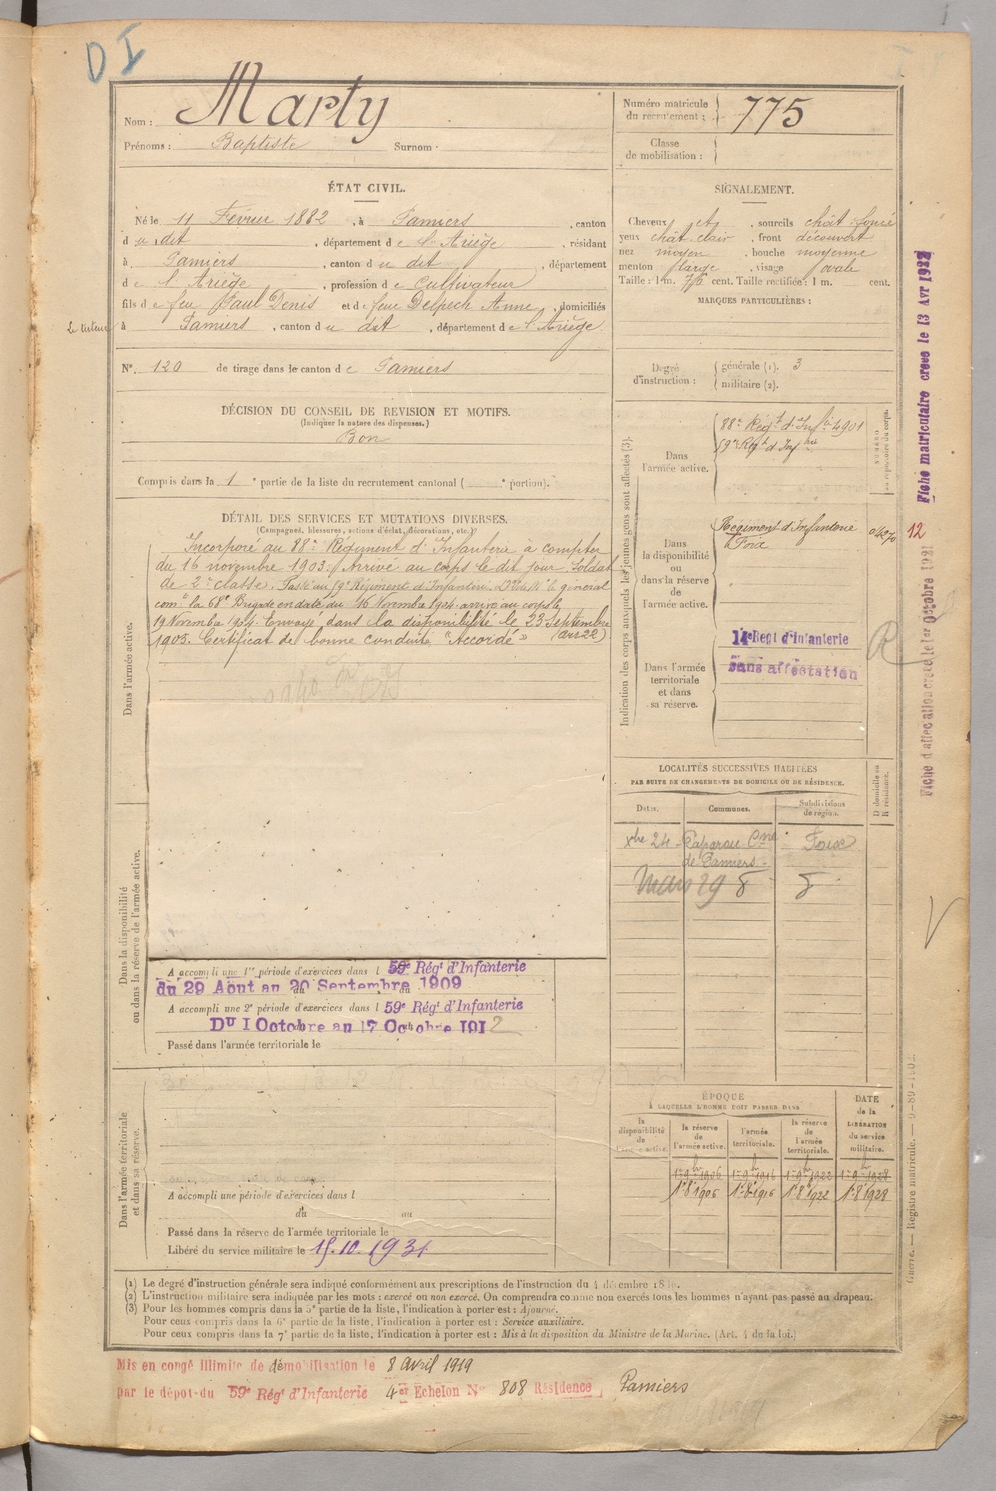 D I
Nom : Marty
Prénoms : Baptiste Surnom :
Numéro matricule du recrutement : 775
Classe de mobilisation :
ÉTAT CIVIL.
Né le 11 Février 1882, à Pamiers, canton
du dit, département de l'Ariège, résidant
à Pamiers, canton du dit, département
de l'Ariège, profession de Cultivateur
fils de feu Paul Denis et de feue Delpech Anne, domiciliés
Le tuteur
à Pamiers, canton du dit, département de l'Ariège
N° 120 de tirage dans le canton de Pamiers
DÉCISION DU CONSEIL DE REVISION ET MOTIFS.
(Indiquer la nature des dispenses.)
Bon
Compris dans la 1e partie de la liste du recrutement cantonal ( e portion).
SIGNALEMENT.
Cheveux et, sourcils chât. foncé
yeux chât. clair, front découvert
nez moyen, bouche moyenne
menton large, visage ovale
Taille : 1 m. cent. Taille rectifiée : 1 m. cent.
MARQUES PARTICULIÈRES :
Degré d'instruction :
générale (1). 3
militaire (2).
DÉTAIL DES SERVICES ET MUTATIONS DIVERSES.
(Campagnes, blessures, actions d'éclat, décorations, etc.)
Dans l'armée active.
Incorporé au 88e Régiment d'Infanterie à compter
du 16 novembre 1903. Arrivé au corps le dit jour. Soldat
de 2e classe. Passé au 59e Régiment d'Infanterie. le général
comt la 68e Brigade en date du 16 Novembre 1904. arrivé au corps le
19 Novembre 1904. Envoyé dans la disponibilité le 23 Septembre
1905. Certificat de bonne conduite "Accordé"
Dans la disponibilité ou dans la réserve de l'armée active.
A accompli une 1re période d'exercices dans l 59e Régt d'Infanterie
du 29 Aout au 20 Septembre 1909
A accompli une 2e période d'exercices dans l 59e Régt d'Infanterie
Du 1 Octobre au 17 Octobre 1912
Passé dans l'armée territoriale le
Dans l'armée territoriale et dans sa réserve.
A accompli une période d'exercices dans l
du au
Passé dans la réserve de l'armée territoriale le
Libéré du service militaire le 15.10.1931
Indication des corps auxquels les jeunes gens sont affectés (3).
NUMÉRO au répertoire du corps.
Dans l'armée active.
88e Régt d'Infie 4901
59e Régt d'Infie
Dans la disponibilité ou dans la réserve de l'armée active.
Régiment d'Infanterie
Foix
12
Dans l'armée territoriale et dans sa réserve.
14e Regt d'infanterie
sans affectation
R
LOCALITÉS SUCCESSIVES HABITÉES
PAR SUITE DE CHANGEMENTS DE DOMICILE OU DE RÉSIDENCE.
Dates. Communes. Subdivisions de région. D domicile ou R résidence.
xbre 24 Cne de Pamiers Foix
Mars 29
ÉPOQUE
A LAQUELLE L'HOMME DOIT PASSER DANS
la disponibilité de l'armée active.
la réserve de l'armée active.
l'armée territoriale.
la réserve de l'armée territoriale.
DATE de la LIBÉRATION du service militaire.
1er 9bre 1906 1er 9bre 1916 1er 9bre 1922 1er 9bre 1928
1er 8bre 1906 1er 8bre 1916 1er 8bre 1922 1er 8bre 1928
Fiche matriculaire creee le 13 Avr 1922
Fiche d'affectation creée le 1er Octobre 1921
Guerre. — Registre matricule. — 9-89-1902.
(1) Le degré d'instruction générale sera indiqué conformément aux prescriptions de l'instruction du 4 décembre
(2) L'instruction militaire sera indiquée par les mots : exercé ou non exercé. On comprendra comme non exercés tous les hommes n'ayant pas passé au drapeau.
(3) Pour les hommes compris dans la 5e partie de la liste, l'indication à porter est : Ajourné.
Pour ceux compris dans la 6e partie de la liste, l'indication à porter est : Service auxiliaire.
Pour ceux compris dans la 7e partie de la liste, l'indication à porter est : Mis à la disposition du Ministre de la Marine. (Art. 4 de la loi.)
Mis en congé illimité de démobilisation le 8 Avril 1919
par le dépot du 59e Régt d'Infanterie 4er Echelon N° 808 Résidence Pamiers